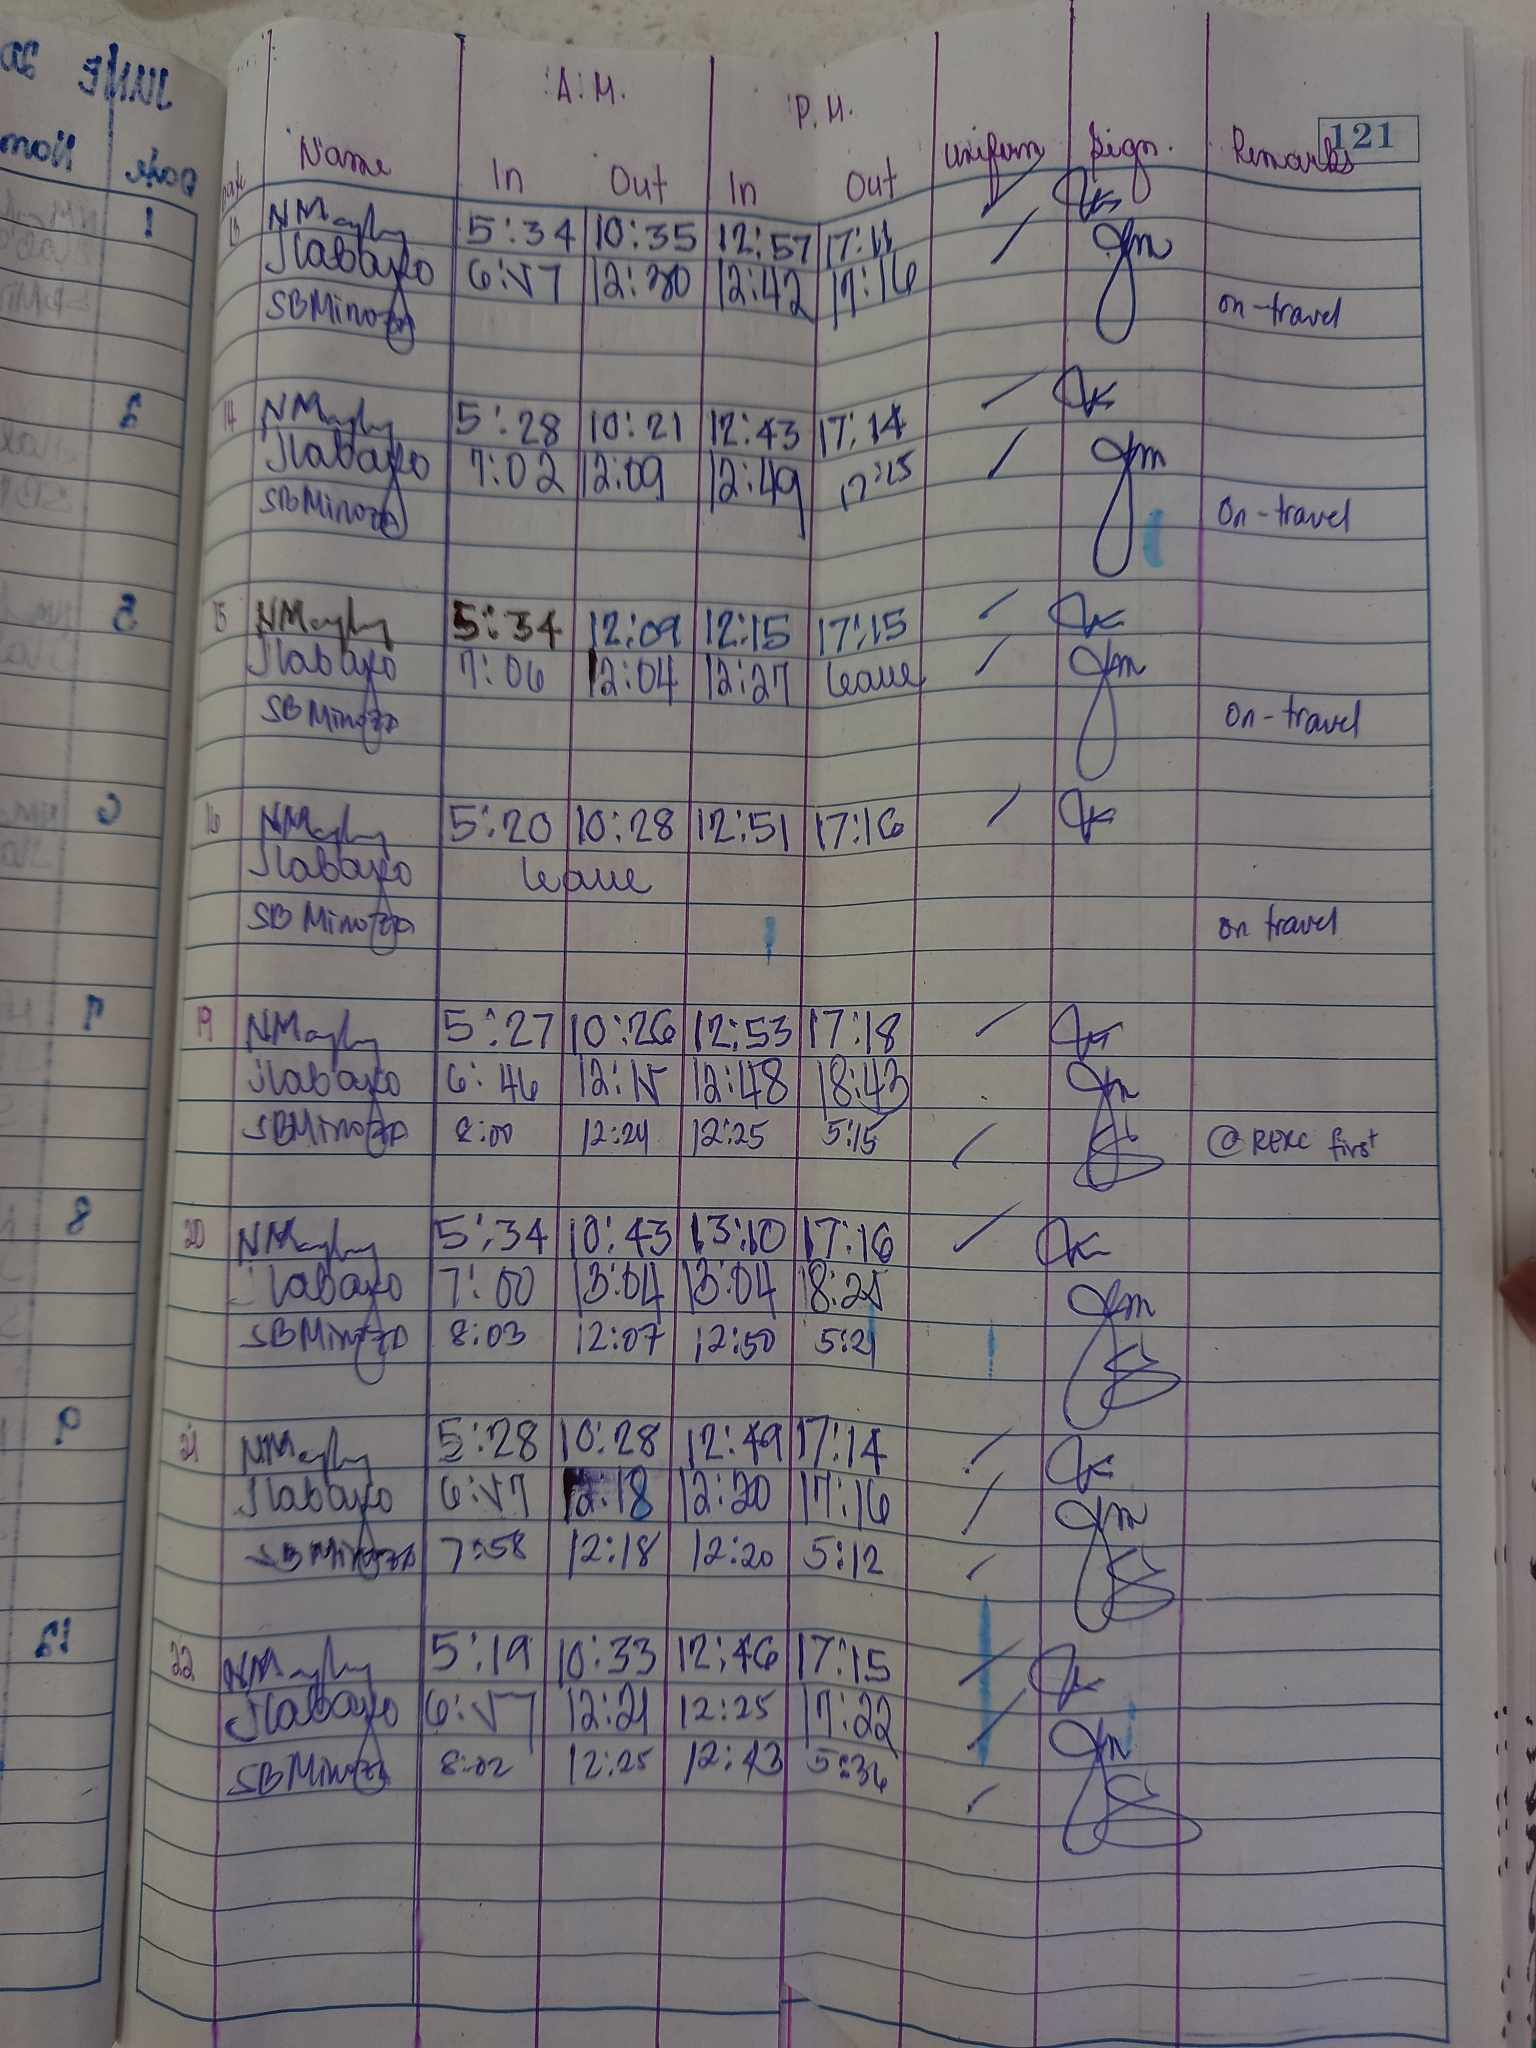 A.M. P.M. 121
Date Name In Out In Out Uniform Sign. Remarks
13 5:34 10:35 12:57 17:11
JLabayo 6:57 12:30 12:42 17:16
SBMinoza on-travel
14 5:28 10:21 12:43 17:14
JLabayo 7:02 12:09 12:49 17:15
SBMinoza On-travel
15 5:34 12:09 12:15 17:15
JLabayo 7:06 12:04 12:27 leave
SBMinoza On-travel
16 5:20 10:28 12:51 17:16
JLabayo leave
SBMinoza on travel
19 5:27 10:26 12:53 17:18
JLabayo 6:46 12:15 12:48 18:43
SBMinoza 8:00 12:24 12:25 5:15 first
20 5:34 10:43 13:10 17:16
JLabayo 7:00 13:04 13:04 18:25
SBMinoza 8:03 12:07 12:50 5:21
21 5:28 10:28 12:49 17:14
JLabayo 6:57 12:18 12:20 17:16
SBMinoza 7:58 12:18 12:20 5:12
22 5:19 10:33 12:46 17:15
JLabayo 6:57 12:21 12:25 17:22
SBMinoza 8:02 12:25 12:43 5:36